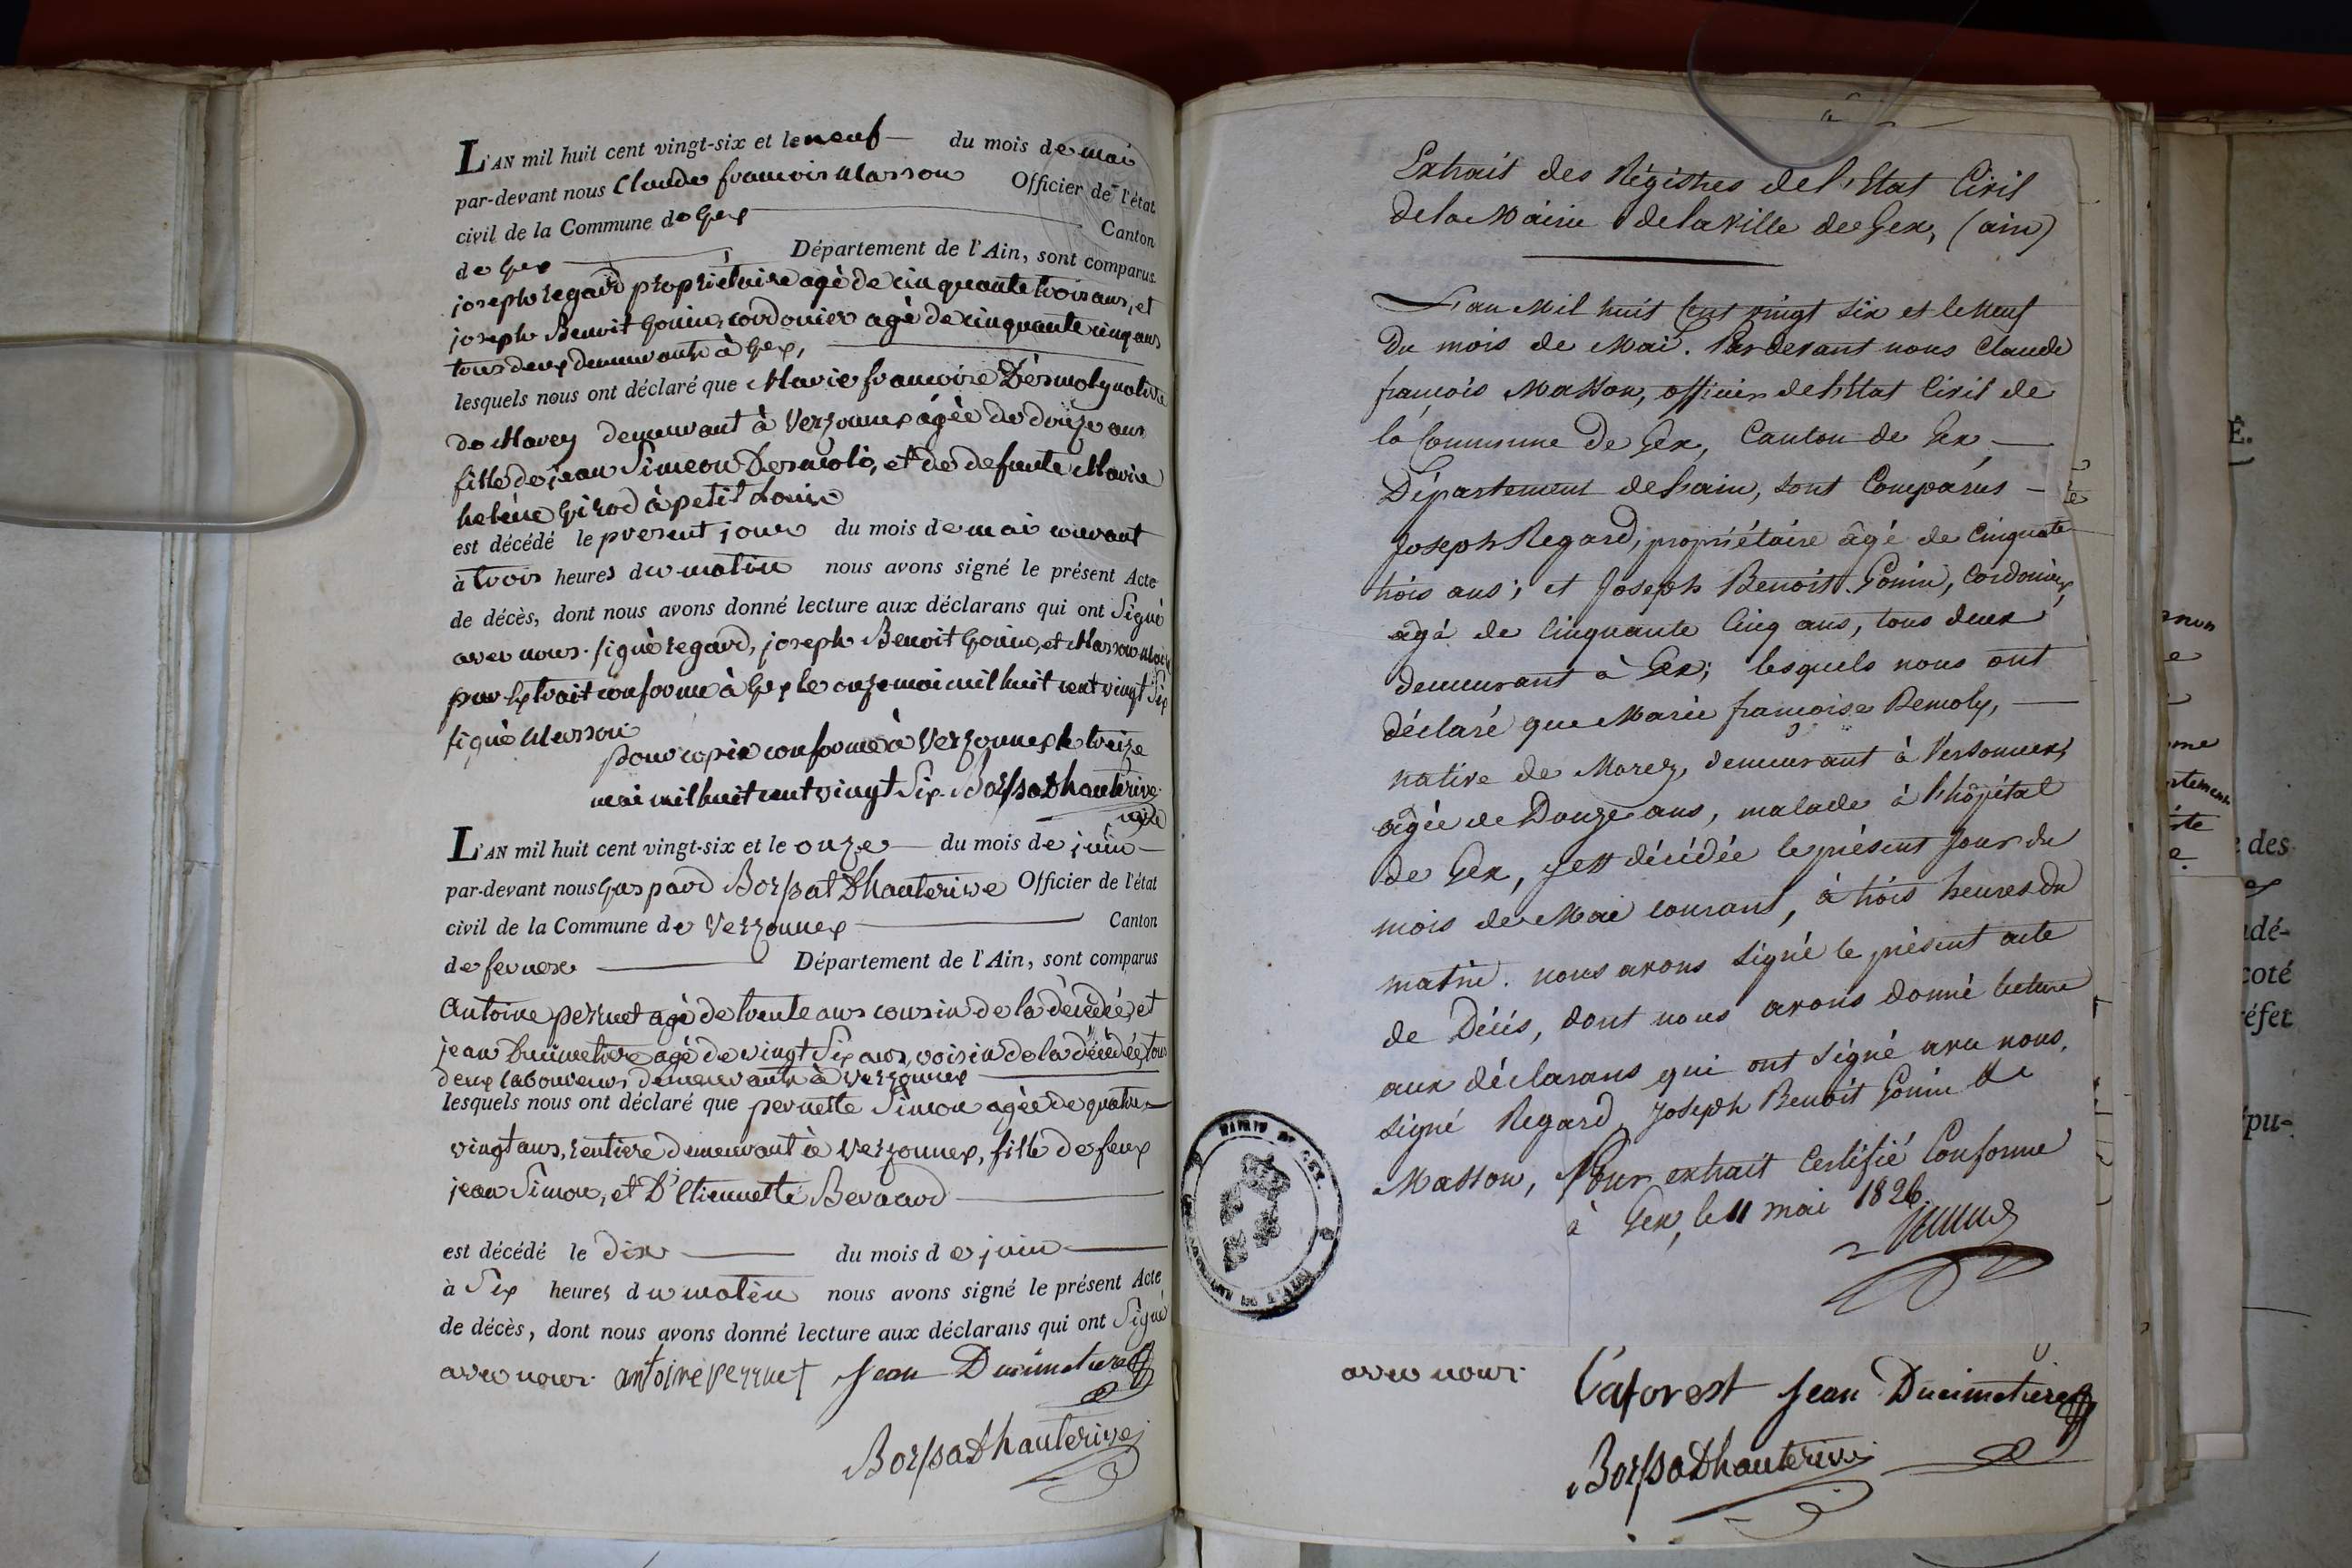 L'AN mil huit cent vingt-six et le neuf du mois de mai
par-devant nous Claude francois Masson Officier de l'état
civil de la Commune de Gex Canton
de Gex Département de l'Ain, sont comparus
joseph regard propriétaire agè de cinquante trois ans, et
joseph Benoit Gonin, cordonier agè de cinquante cinq ans
tous deux demeurants à Gex,
lesquels nous ont déclaré que Marie francoise Dèsmoly native
de Morey demeurant à Versonnex agèe de douze ans
fille de jean Simeon Desmoli, et de defunte Marie
helène Girod à petit Louis
est décédé le present jour du mois de mai courant
à trois heures du matin nous avons signé le présent Acte
de décès, dont nous avons donné lecture aux déclarans qui ont Signé
avec nous. signè regard, joseph Benoit Gonin, et Masson
pour Extrait conforme à Gex le onze mai mil huit cent vingt Six
signè Masson
pour copie conforme à Versonnex le treize
mai mil huit cent vingt Six. Borssat Dhauterive
maire
L'AN mil huit cent vingt-six et le onze du mois de juin
par-devant nous Gaspard Borssat Dhauterive Officier de l'état
civil de la Commune de Versonnex Canton
de fernex Département de l'Ain, sont comparus
Antoine perruet agè de trente ans cousin de la dècèdèe, et
jean Ducimetiere agè de vingt Six ans, voisin de la dècèdèe, tous
deux laboureurs demeurants à Versonnex
lesquels nous ont déclaré que pernette Simon agèe de quatre
vingt ans, rentiere demeurant à Versonnex, fille de feux
jean Simon, et D'Etiennette Bernard
est décédé le dix du mois de juin
à Six heures du matin nous avons signé le présent Acte
de décès, dont nous avons donné lecture aux déclarans qui ont Signé
avec nous. antoine perruet Jean Ducimetiere
Borssat Dhauterive
Extrait des Régistres de l'Etat Civil
de la Mairie de la Ville de Gex, (ain)
L'an Mil huit Cent vingt Six et le Neuf
du mois de Mai. Pardevant nous Claude
françois Masson, officier de l'Etat Civil de
la Commune de Gex, Canton de Gex
Département de l'ain, sont Comparus
Joseph Regard, propriétaire âgé de Cinquante
trois ans; et Joseph Benoit Gonin, Cordonier,
âgé de Cinquante Cinq ans, tous deux
demeurant à Gex; lesquels nous ont
déclaré que Marie françoise Demoly,
native de Morez, demeurant à Versonnex,
âgée de Douze ans, malade à l'hôpital
de Gex, y est décédée le présent Jour du
mois de Mai courant, à trois heures du
matin. nous avons signé le présent acte
de Décés, dont nous avons donné lecture
aux déclarans qui ont signé avec nous.
signé Regard, Joseph Benoit Gonin &
Masson, Pour extrait Certifié Conforme
à Gex, le 11 mai 1826
avec nous. Laforest Jean Ducimetiere
Borssat Dhauterive